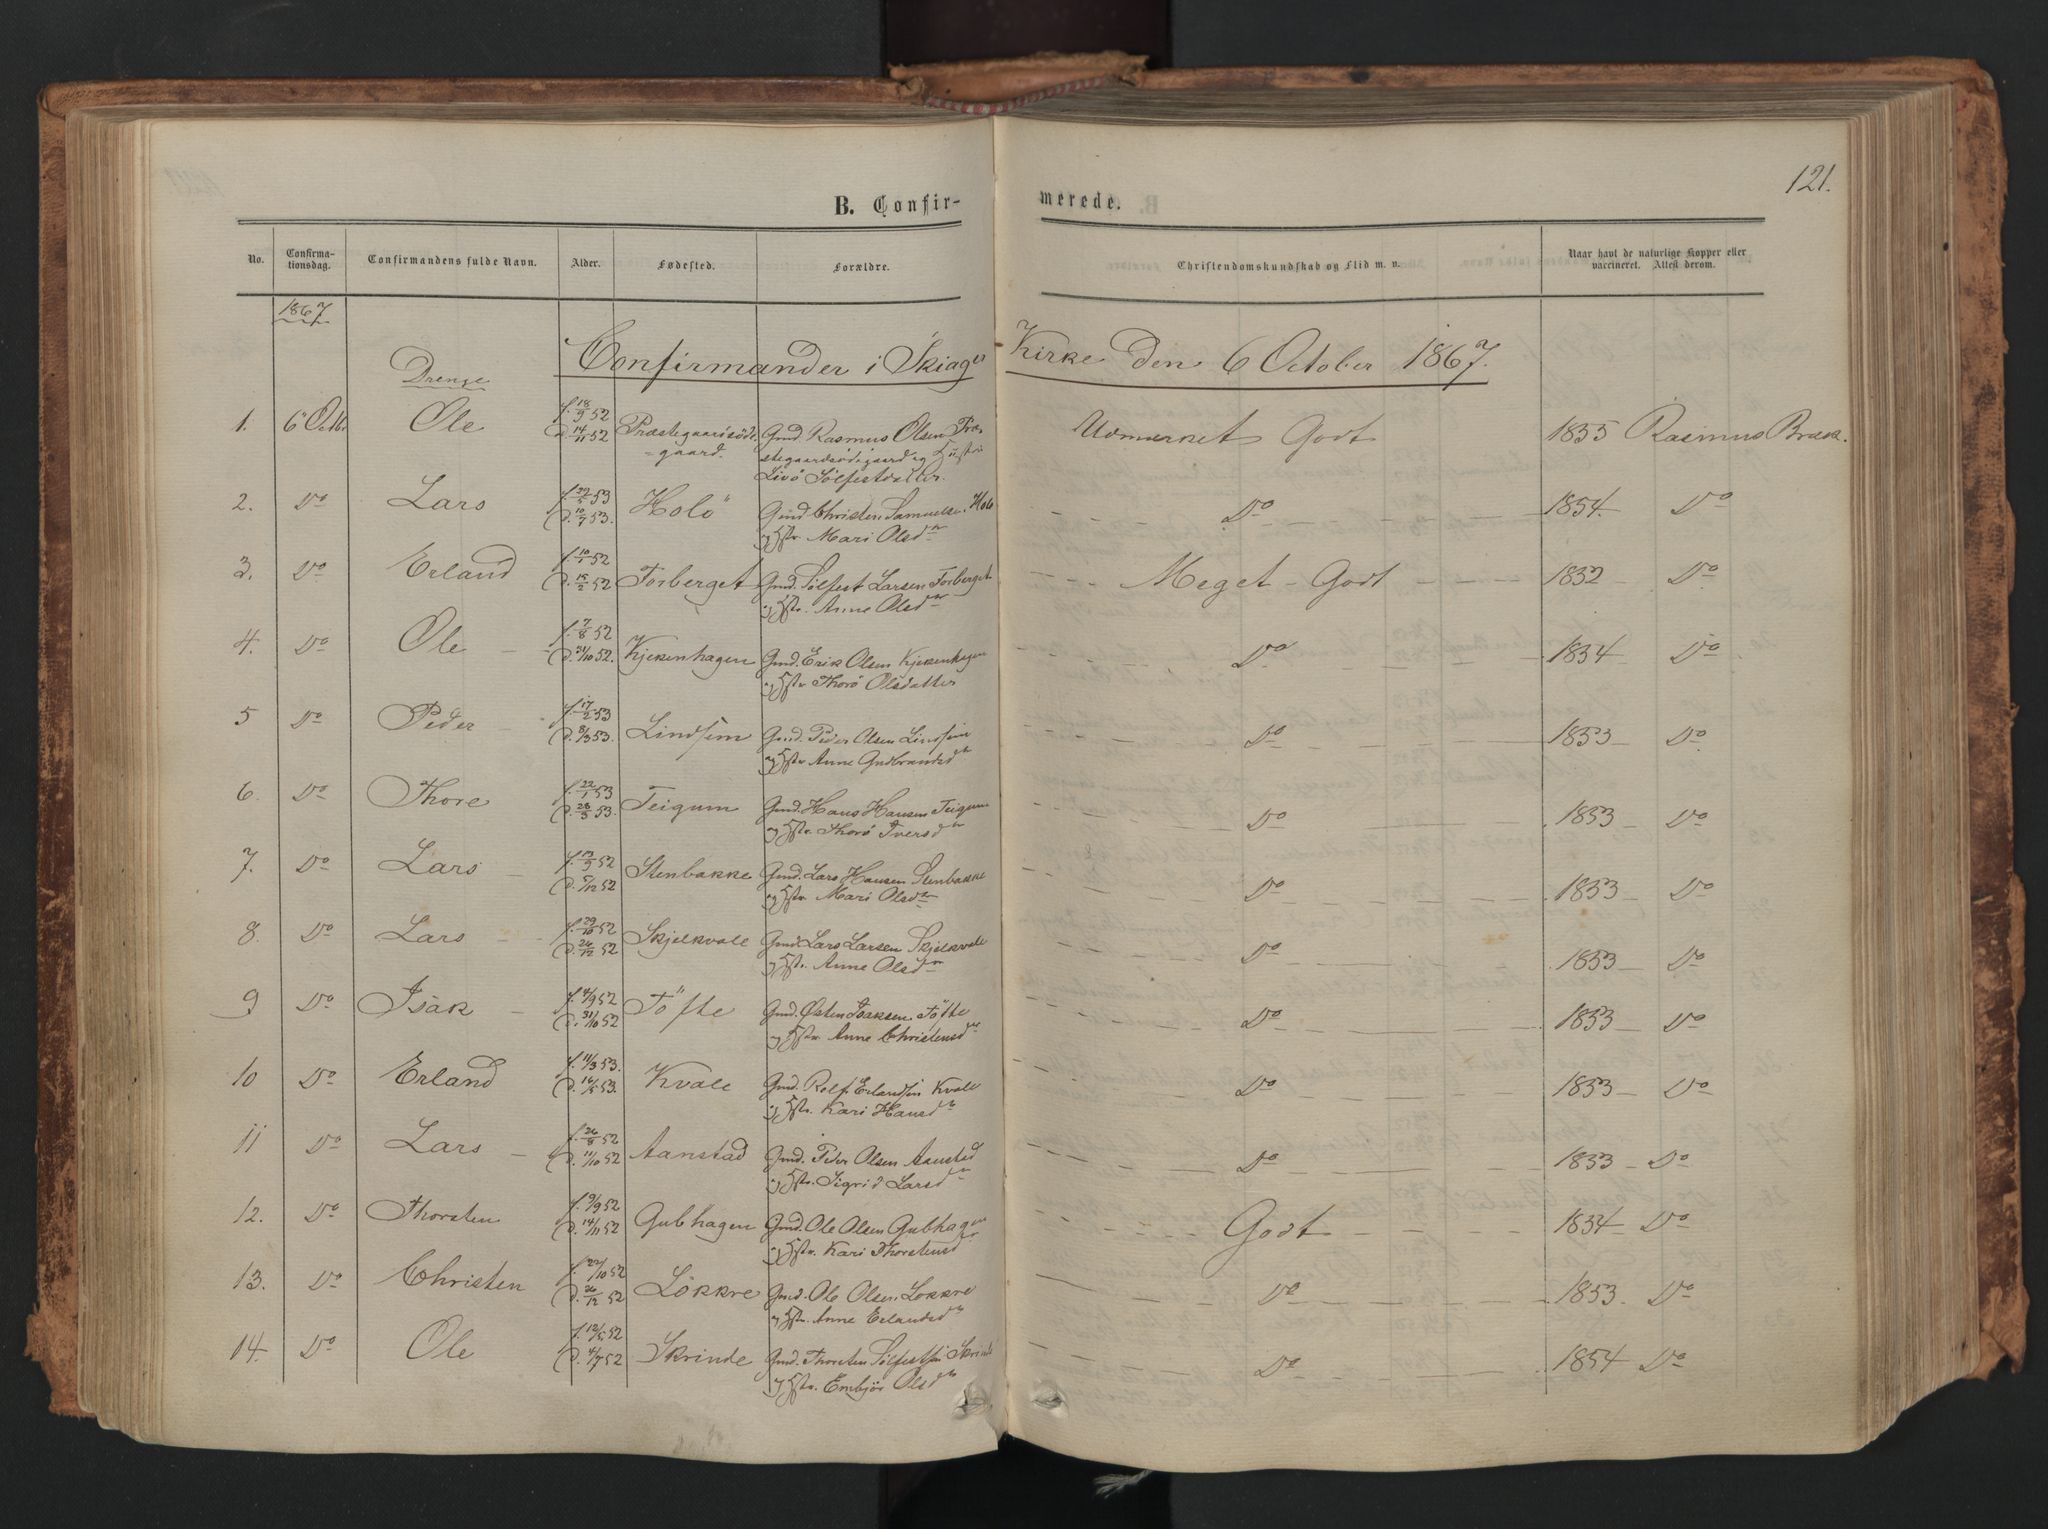 121.
B. Confirmerede.
No. Confirmationsdag. Confirmandens fulde Navn. Alder. Fødested. Forældre. Christendomskundskab og Flid m. v. Naar havt de naturlige Kopper eller vaccineret. Attest derom.
1867
Confirmander i Skiager Kirke den 6 October 1867.
Drenge
1. 6 Octbr. Ole f. 18/9 52 Præstegaardsöde= Gmd. Rasmus Olsen Præ- Udmærket Godt 1855 Rasmus Bræk.
d. 14/11 52 =gaard. stegaardsödegaard og Hustru
Livö Sölfestdatter.
2. Do Lars f. 29/5 53 Holö Gmd Christen Samuelsen Holö Do 1854. Do
d. 10/7 53. og Hstr. Mari Olsdr
3. Do Erland f. 10/1 52 Torberget Gmd. Sölfest Larsen Torberget Meget Godt 1852 Do
d. 15/2 52 og Hstr. Anne Olsdr
4. Do Ole f. 7/8 52 Kjekenhagen Gmd. Erik Olsen Kjekenhagen Do 1854 Do
d. 31/10 52. og Hstr Thorö Olsdatter
5 Do Peder f. 17/2 53 Lindsem Gmd. Peder Olsen Lindsem Do 1853 Do
d. 8/3 53. og Hstr Anne Gudbrandsdr
6. Do Thore f. 22/1 53 Teigum Gmd. Hans Hansen Teigum Do 1853 Do
d. 28/3 53. og Hstr. Thorö Iversdr
7. Do Lars f. 13/9 52 Stenbakke Gmd. Lars Hansen Stenbakke Do 1853 Do
d. 5/12 52 og Hstr. Mari Olsdr
8. Do Lars f. 29/10 52 Skjelkvale Gmd. Lars Larsen Skjelkvale Do 1853 Do
d. 26/12 52 og Hstr. Anne Olsdr
9 Do Isak f. 4/9 52 Töfte Gmd. Østen Isaksen Töfte Do 1853 Do
d. 31/10 52 og Hstr. Anne Christensdr
10 Do Erland f. 11/3 53. Kvale Gmd. Rolf Erlandsen Kvale Do 1853 Do
d. 16/5 53. og Hstr. Kari Hansdr
11 Do Lars f. 26/8 52 Aanstad Gmd. Peder Olsen Aanstad Do 1853 Do
d. 11/10 52 og Hstr. Sigrid Larsdr
12. Do Thorsten f. 9/9 52 Gubhagen Gmd. Ole Olsen Gubhagen Godt 1854 Do
d. 14/11 52 og Hstr. Kari Thorstensdr
13. Do Christen f. 22/10 52 Lökkre Gmd. Ole Olsen Lökkre Do 1853. Do
d. 26/12 52 og Hstr. Anne Erlandsdr
14. Do Ole f. 12/5 52 Skrinde Gmd. Thorsten Sölfestsen Skrinde Do 1854 Do
d. 4/7 52 og Hstr. Embjör Olsdr